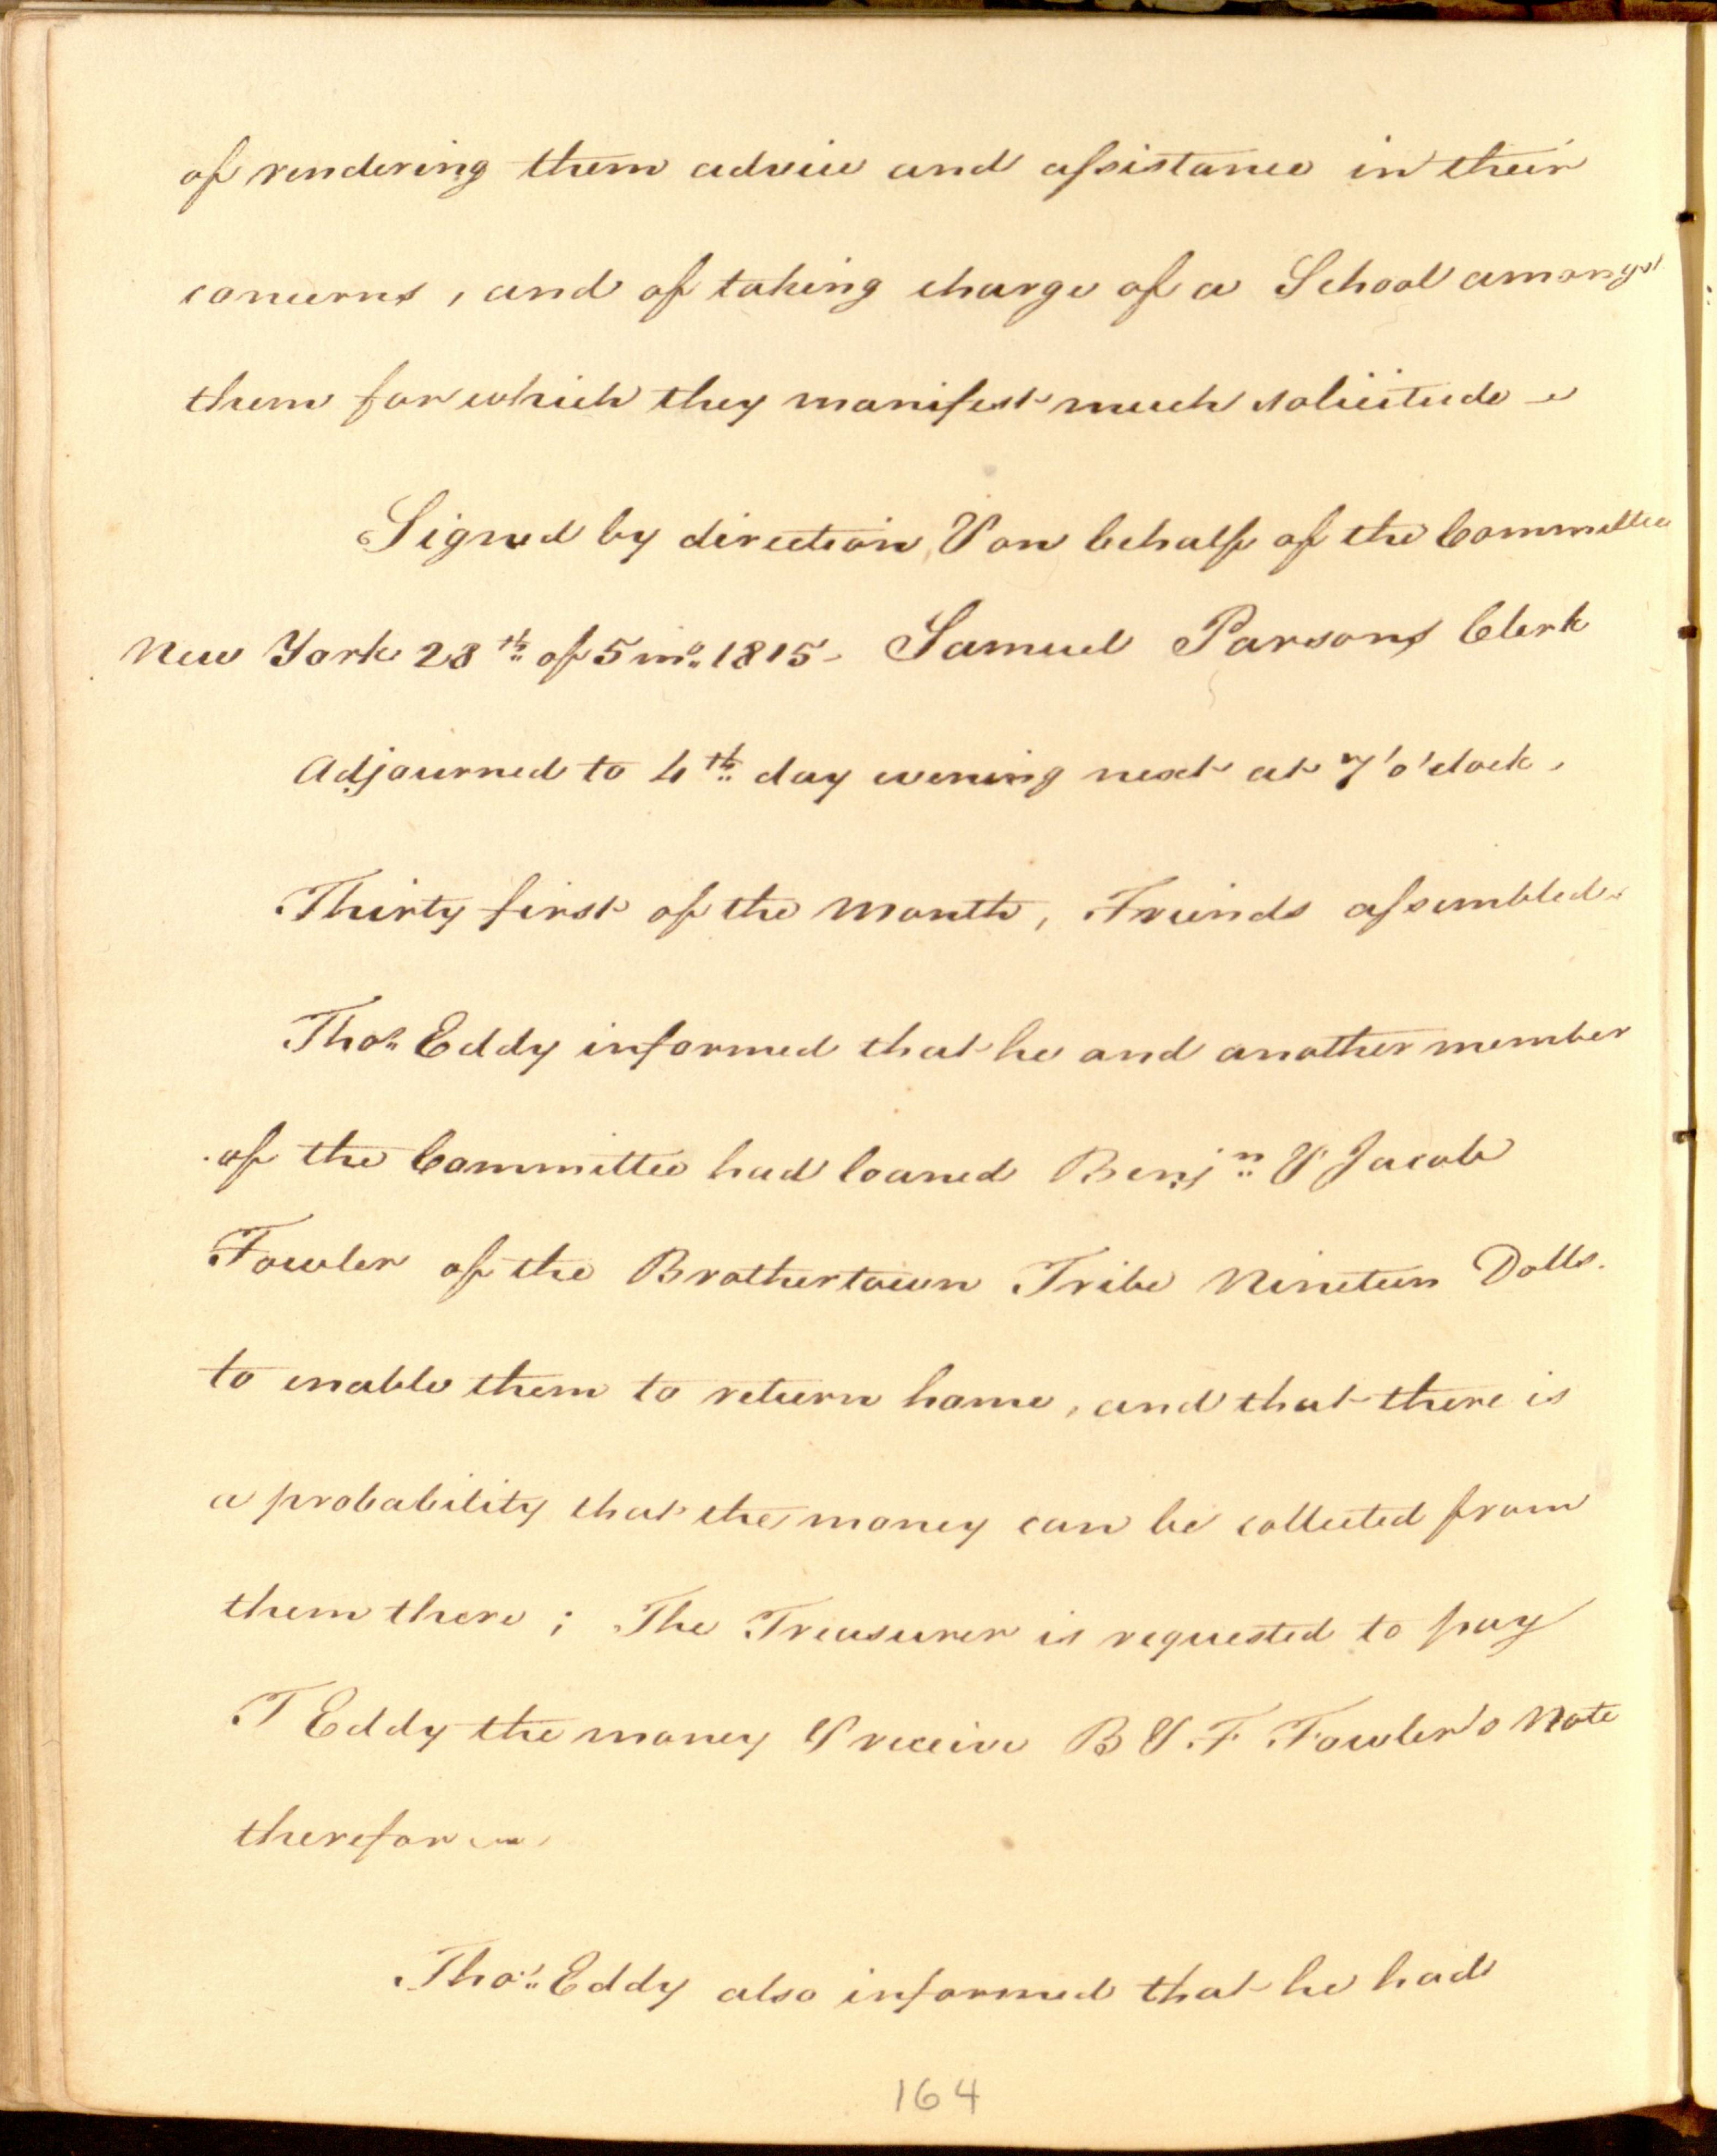 of rendering them advice and assistance in their
concerns, and of taking charge of a School amongst
them for which they manifest much solicitude
Signed by direction, & on behalf of the Committee
New York 28th of 5 mo. 1815 - Samuel Parsons Clerk
Adjourned to 4th day evening next at 7 o'clock,
Thirty first of the Month, Friends assembled
Thos. Eddy informed that he and another member
of the Committee had loaned Benjn. & Jacob
Fowler of the Brothertown Tribe Nineteen Dolls.
to enable them to return home, and that there is
a probability that the money can be collected from
them there; The Treasurer is requested to pay
T Eddy the money & receive B & F Fowler's Note
therefor
Thos. Eddy also informed that he had
164